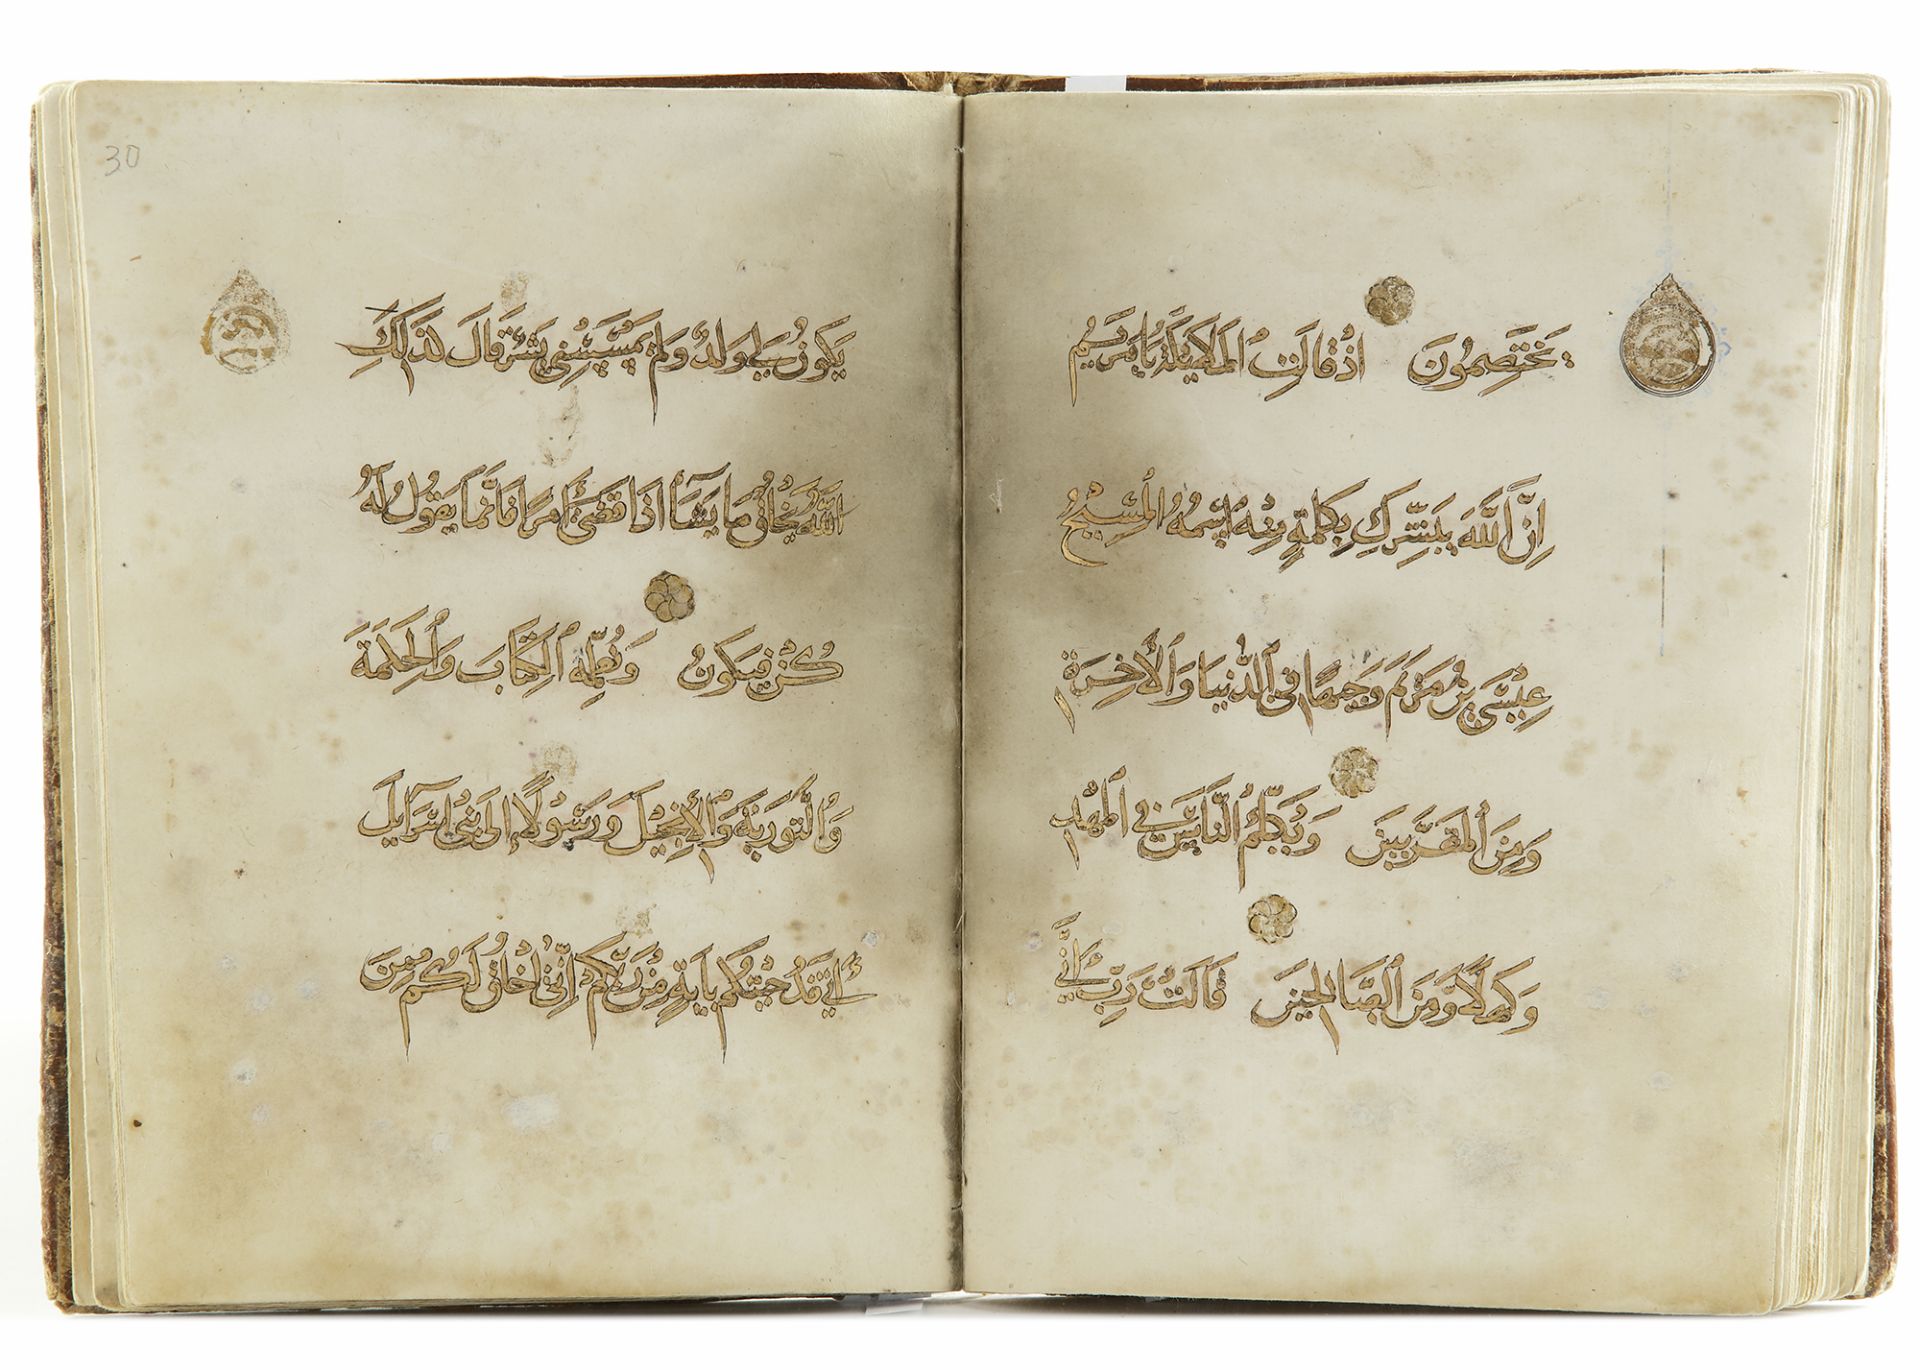 يَختَصِمُونَ اِذْ قَالَتِ المَلَايِكَةُ يَا مَرْيَمُ
اِنَّ اللَّهَ يُبَشِّرُكِ بِكَلِمَةٍ مِنْهُ اسْمُهُ المَسِيحُ
عِيسَى بنُ مَرْيَمَ وَجِيهًا فِي الدُّنْيَا وَالْأَخِرَةِ
وَمِنَ المُقَرَّبِينَ وَيُكَلِّمُ النَّاسَ فِي المَهْدِ
وَكَهْلًا وَمِنَ الصَّالِحِينَ قَالَتْ رَبِّ أَنَّى
30
يَكُونُ لِي وَلَدٌ وَلَمْ يَمْسَسْنِي بَشَرٌ قَالَ كَذَلِكِ
اللَّهُ يَخْلُقُ مَا يَشَآءُ اِذَا قَضَى أَمْرًا فَاِنَّمَا يَقُولُ لَهُ
كُنْ فَيَكُونُ وَيُعَلِّمُهُ الْكِتَابَ وَالْحِكْمَةَ
وَالتَّوْرَيةَ وَالْأِنْجِيلَ وَرَسُولًا إِلَى بَنِي اسْرَآيِلَ
أَنِّي قَدْ جِئْتُكُمْ بِايَةٍ مِنْ رَبِّكُمْ اَنِّي اَخْلُقُ لَكُمْ مِنَ